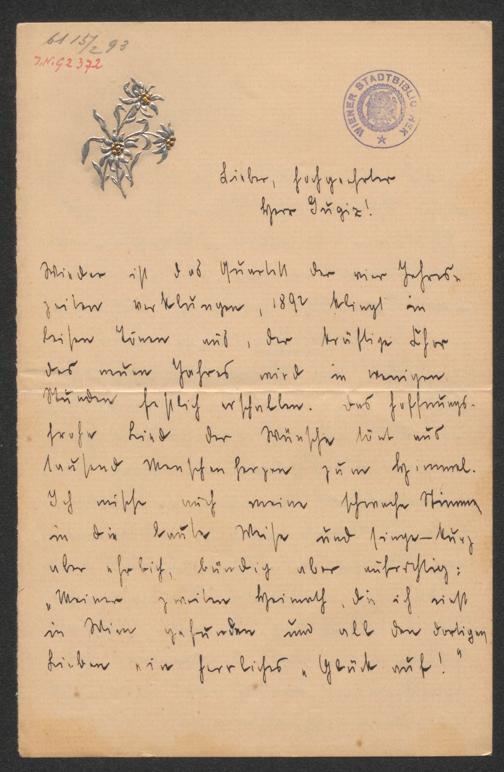 bl 15/2 93
J.N. 92372
WIENER STADTBIBLIOTHEK
Lieber, hochgeehrter
Herr Gugiz!
Wieder ist das Quartett der vier Jahres-
zeiten verklungen, 1892 klingt in
leisen Tönen aus, der kräftige Chor
des neuen Jahres wird in wenigen
Stunden festlich erschallen. Das hoffnungs-
frohe Lied der Wünsche tönt aus
tausend Menschenherzen zum Himmel.
Ich mische auch meine schwache Stimme
in die laute Weise und singe – kurz
aber ehrlich, bündig aber aufrichtig:
„Meiner zweiten Heimath, die ich einst
in Wien gefunden und all den dortigen
Lieben ein herrliches „Glück auf!"